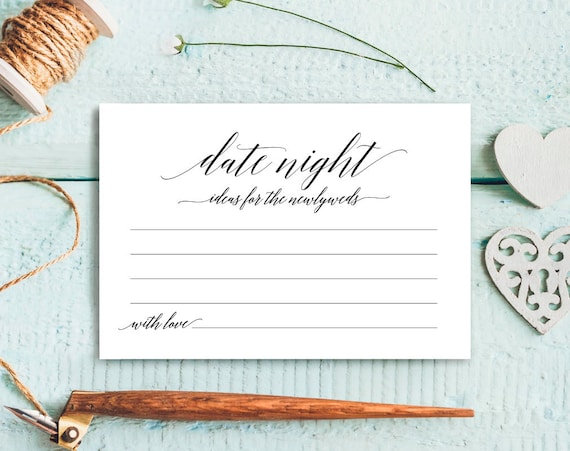 date night
ideas for the newlyweds
with love